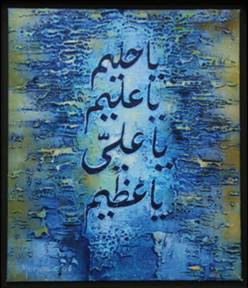 يا حليم
يا عليم
يا عليّ
يا عظيم